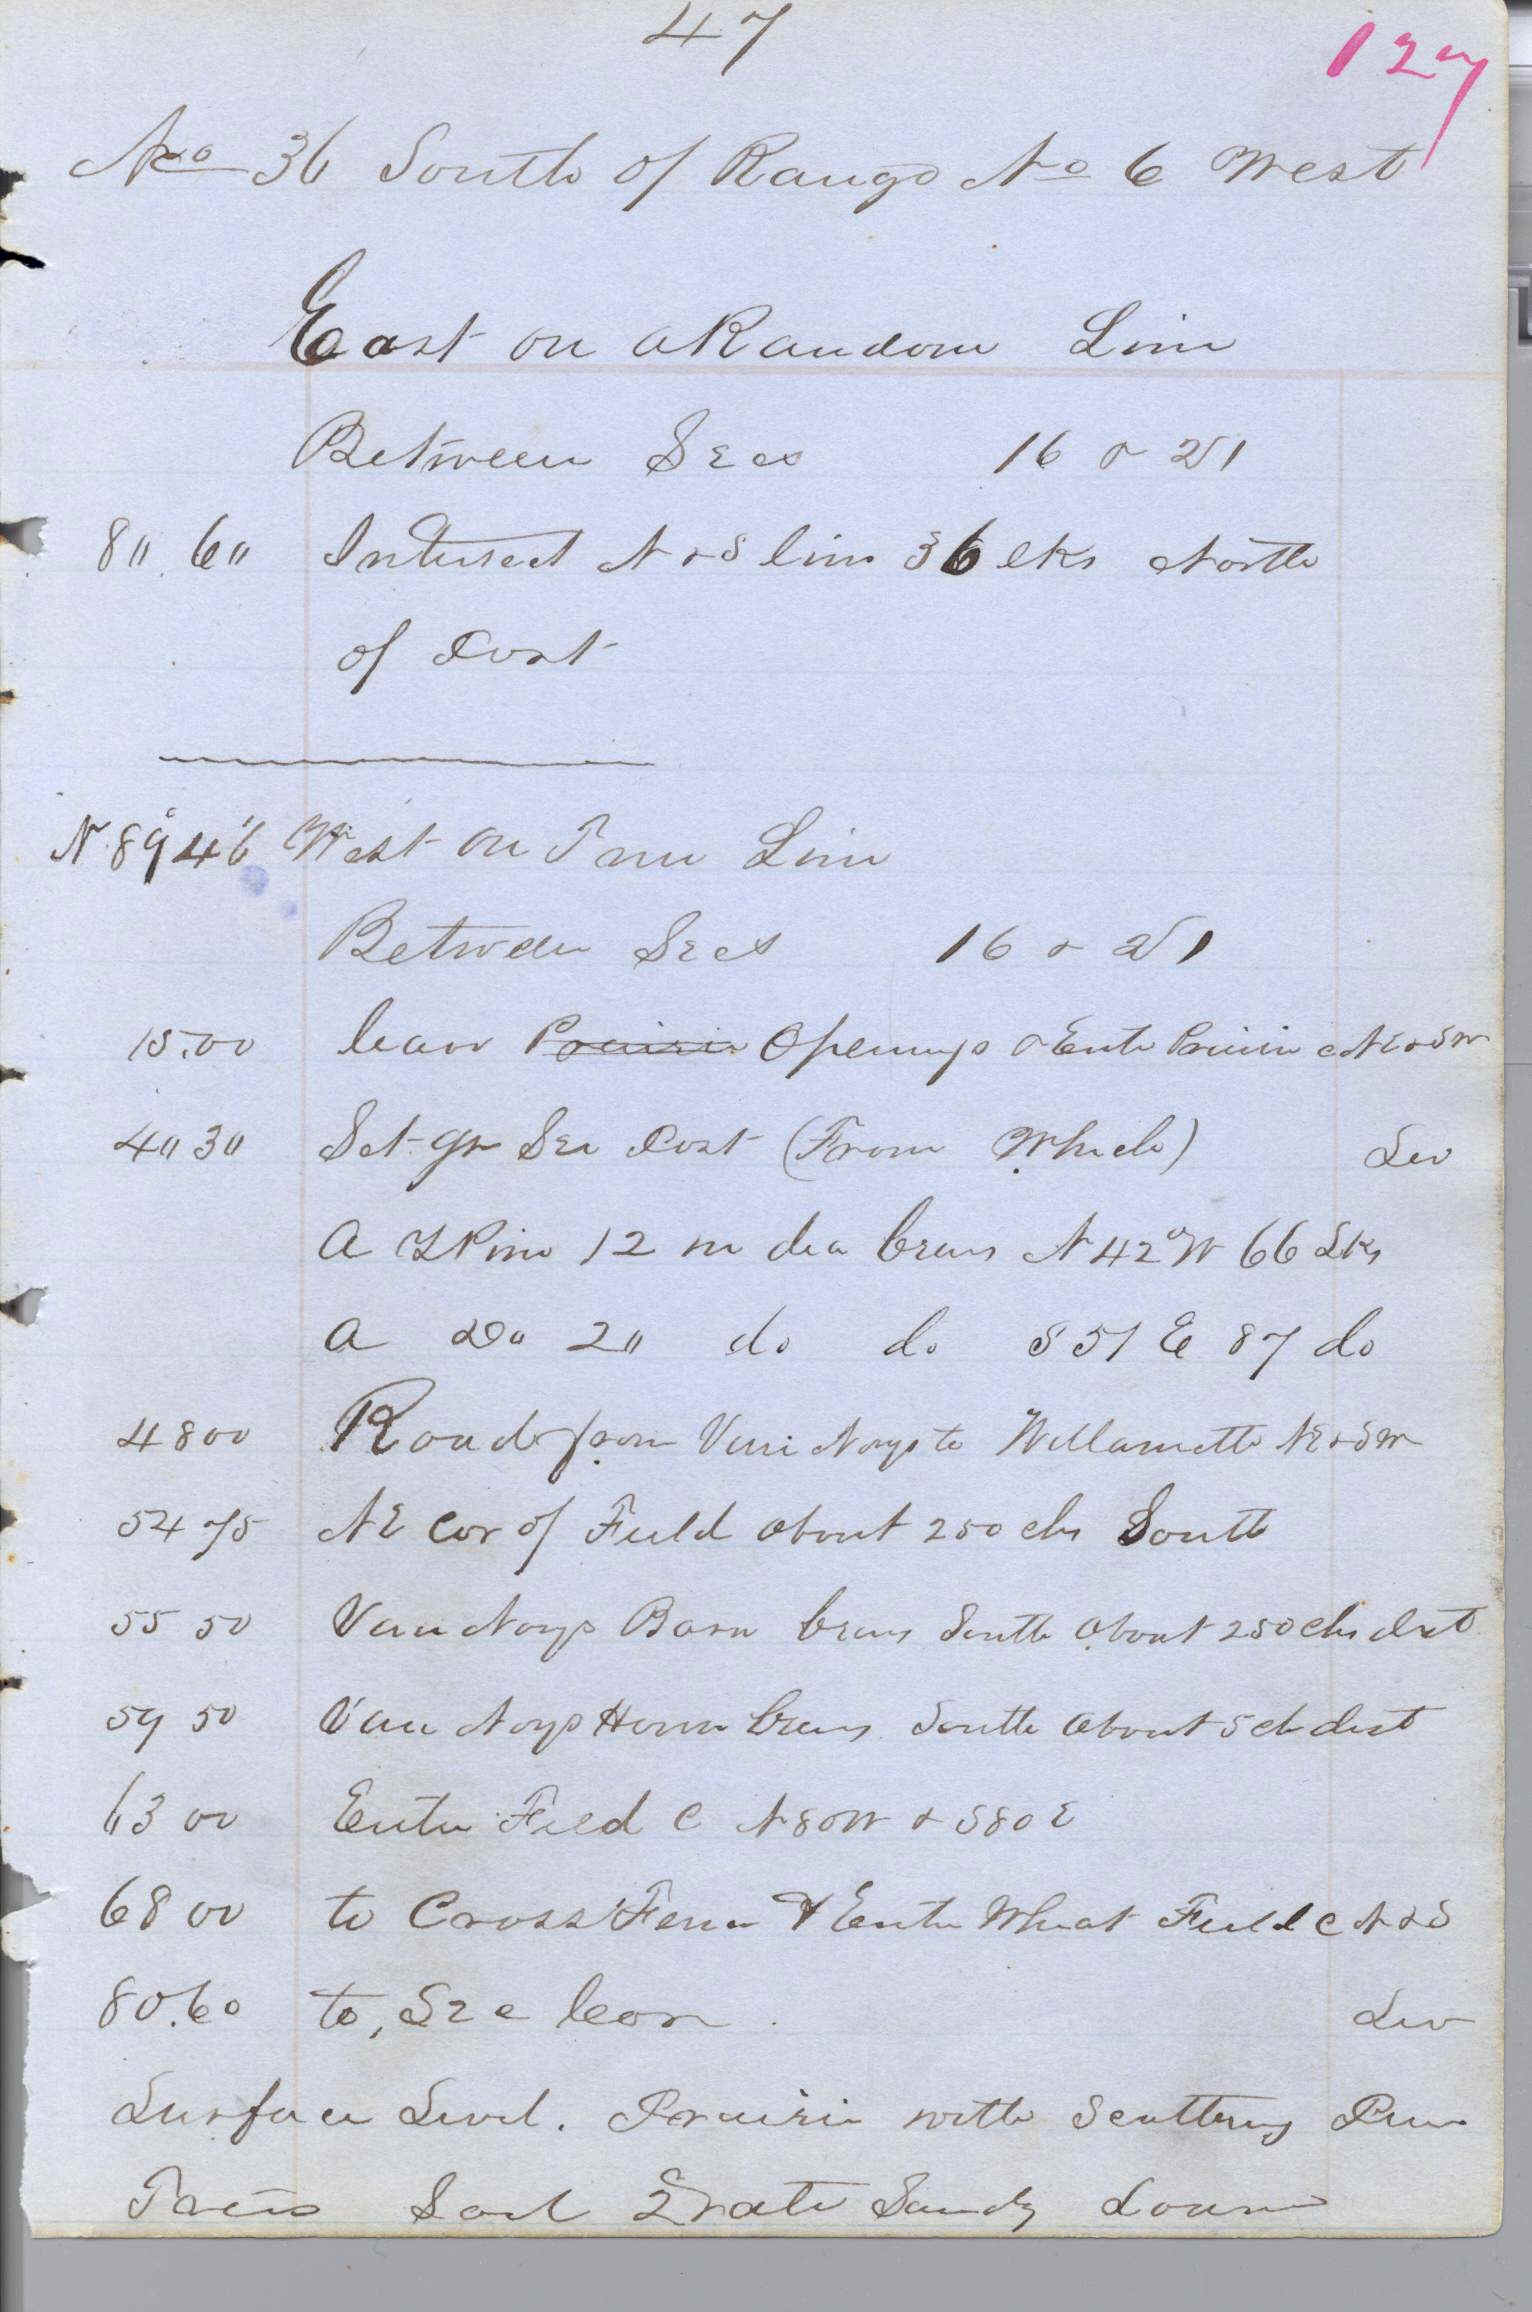 47
127
No 36 South of Range No 6 West
East on a Random Line
Between Secs 16 & 21
80 60 Intersect N & S line 36 lks North
of Post
N 89° 46' West on True Line
Between Secs 16 & 21
15.00 leave Prairie Openings & Enter Prairie c NE & SW
40 30 Set qr Sec Post (From Which) Lev
A Y Pine 12 in dia bears N 42° W 66 Lks
A Do 20 do do S 51 E 87 do
48 00 Road from Van Noys to Willamette NE & SW
54 75 NE Cor of Field about 250 chs South
55 50 Van Noys Barn bears South about 250 chs dist
59 50 Van Noys House bears South about 5 ch dist
63 00 Enter Field C N 80 W & S 80 E
68 00 to Cross Fence & Enter Wheat Field C N & S
80.60 to, Sec Cor Lev
Surface Level. Prairie with Scattering Pine
Trees Soil 2 rate Sandy Loam